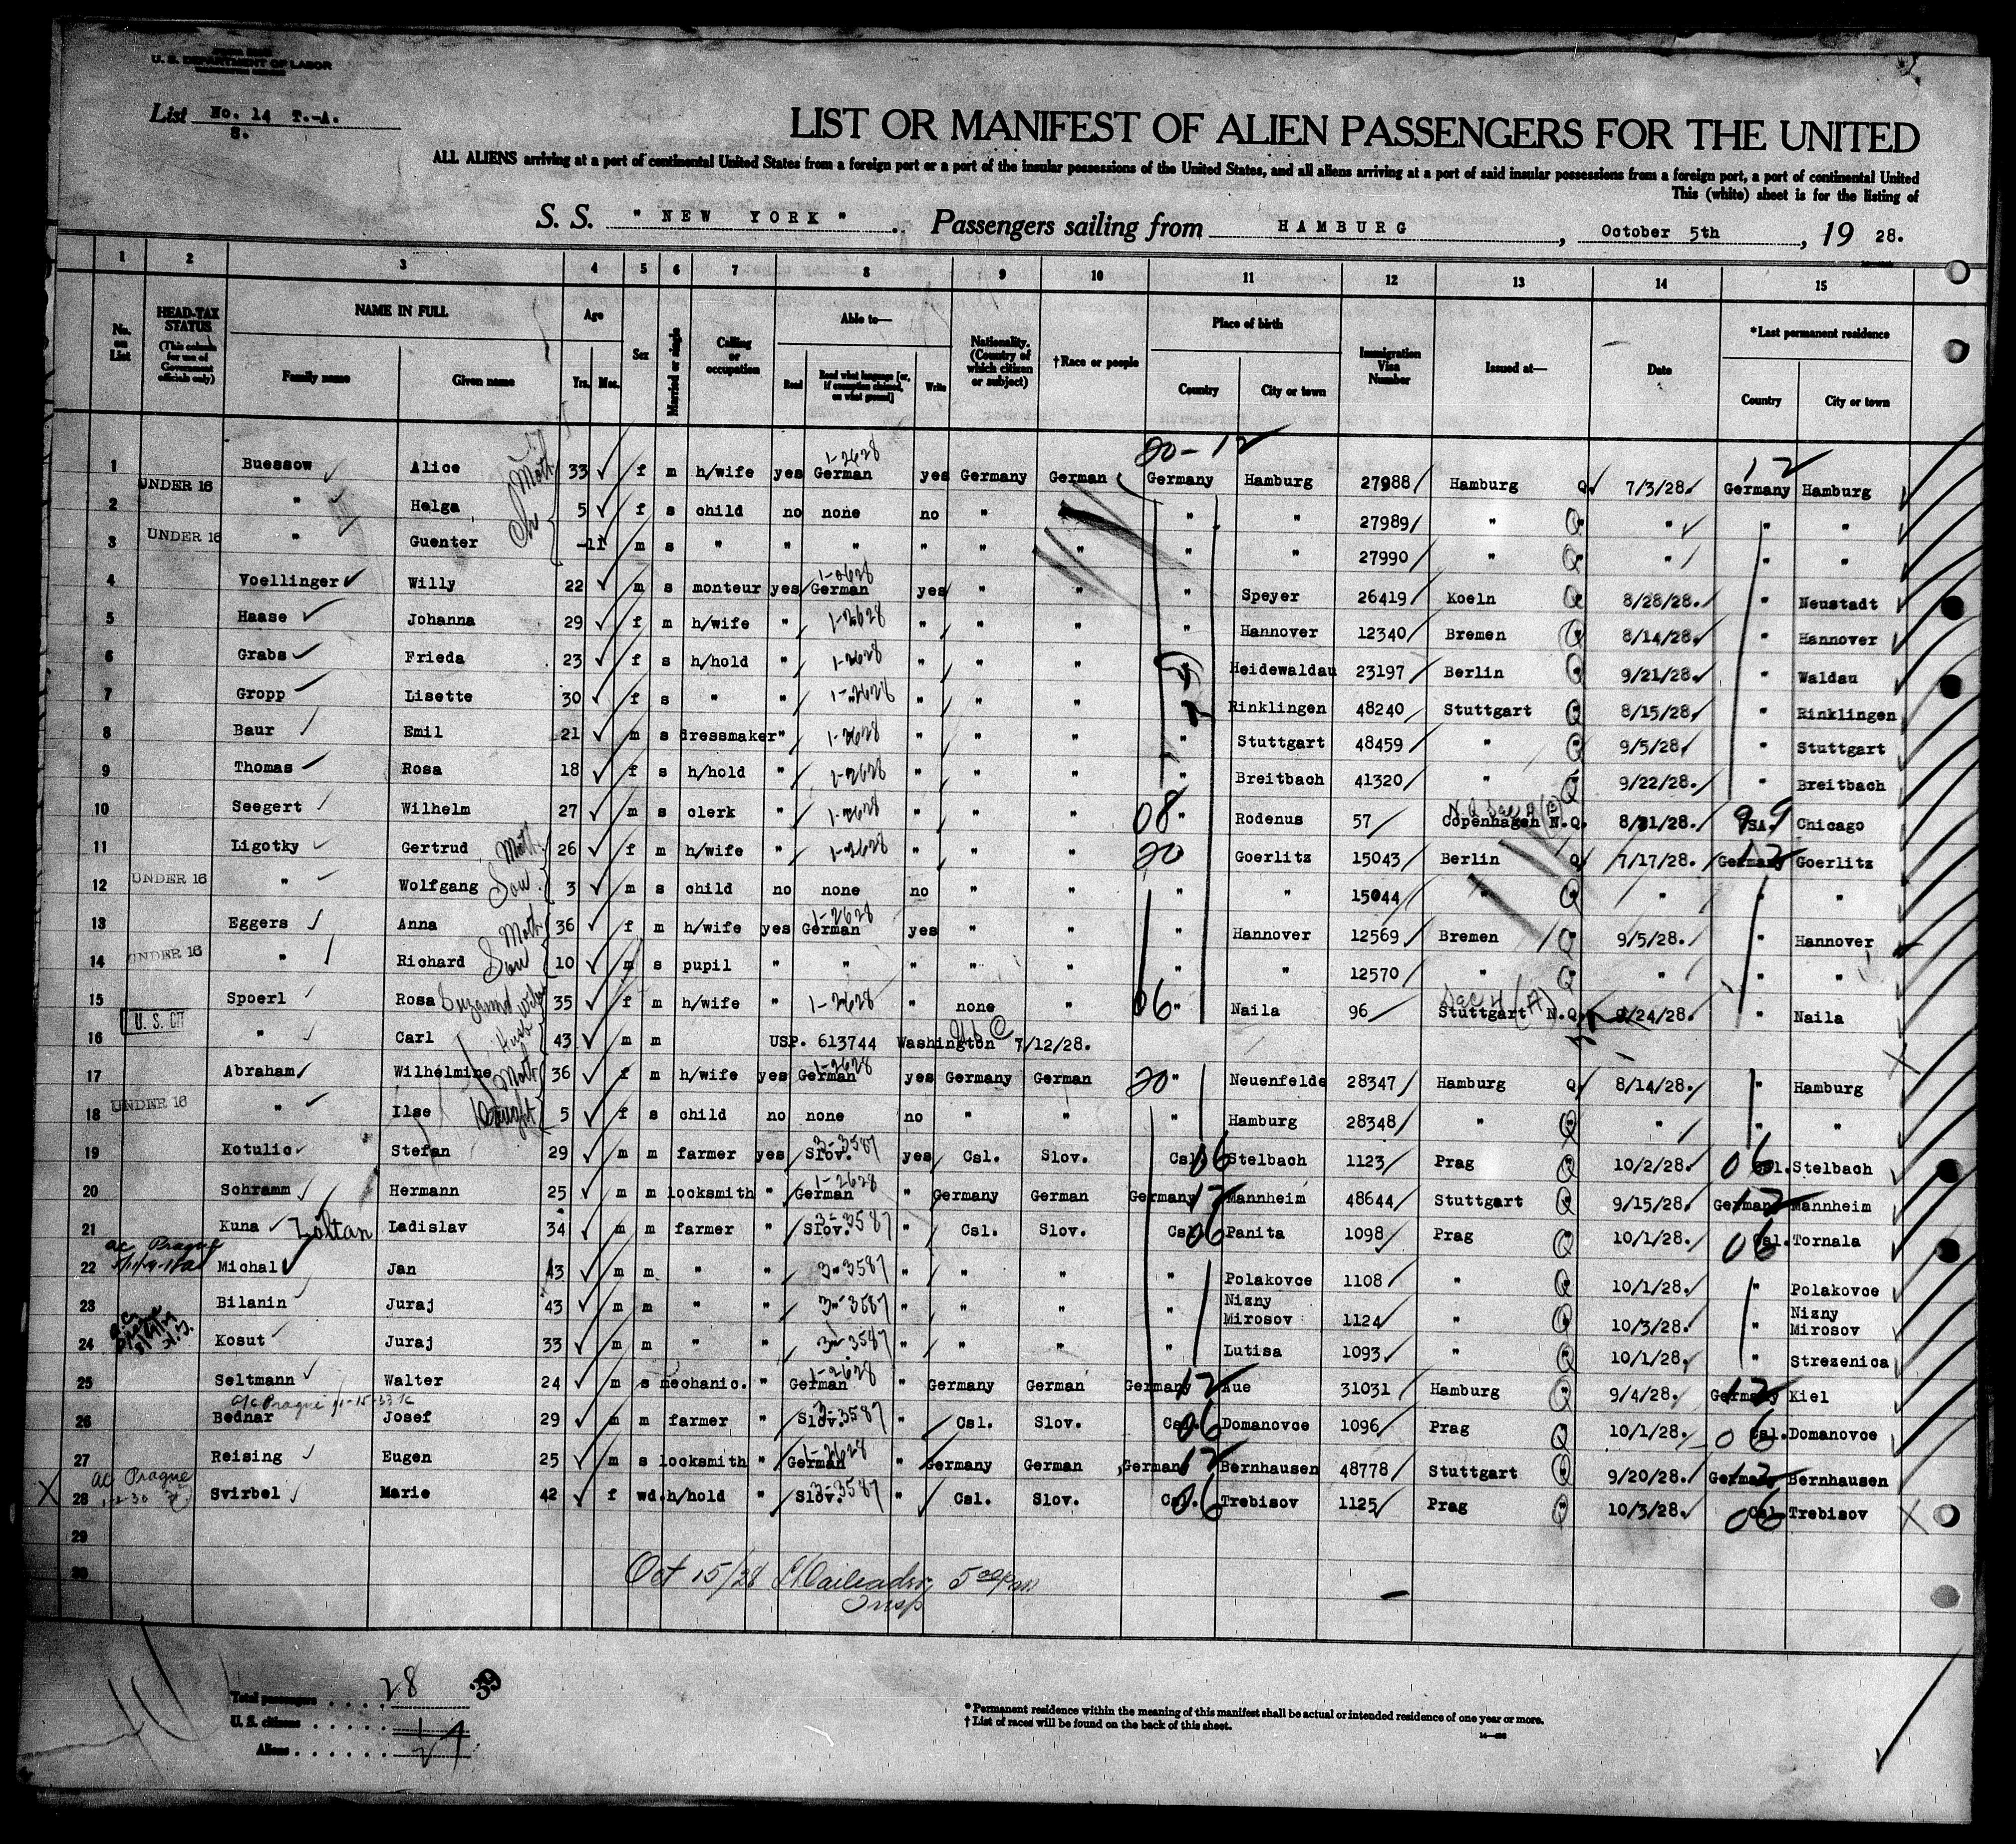 U. S. DEPARTMENT OF LABOR
List No. 14 T.-A.
8.
LIST OR MANIFEST OF ALIEN PASSENGERS FOR THE UNITED
ALL ALIENS arriving at a port of continental United States from a foreign port or a port of the insular possessions of the United States, and all aliens arriving at a port of said insular possessions from a foreign port, a port of continental United
This (white) sheet is for the listing of
S. S. " NEW YORK " Passengers sailing from HAMBURG, October 5th, 19 28.
1 2 3 4 5 6 7 8 9 10 11 12 13 14 15
No. on List HEAD-TAX STATUS (This column for use of Government officials only) NAME IN FULL Family name Given name Age Yrs. Mos. Sex Married or single Calling or occupation Able to— Read Read what language [or, if exemption claimed, on what ground] Write Nationality. (Country of which citizen or subject) †Race or people Place of birth Country City or town Immigration Visa Number Issued at— Date *Last permanent residence Country City or town
20-12
1 Buessow Alice Moth 33 f m h/wife yes German 1-2628 yes Germany German Germany Hamburg 27988 Hamburg Q 7/3/28. 12 Germany Hamburg
2 UNDER 16 " Helga 5 f s child no none no " " " " 27989 " Q " " "
3 UNDER 16 " Guenter -11 m s " " " " " " " " 27990 " Q " " "
4 Voellinger Willy 22 m s monteur yes German yes " " Speyer 26419 Koeln Q 8/28/28. " Neustadt
5 Haase Johanna 29 f m h/wife " 1-2628 " " " " Hannover 12340 Bremen Q 8/14/28. " Hannover
6 Grabs Frieda 23 f s h/hold " 1-2628 " " " " Heidewaldau 23197 Berlin Q 9/21/28. " Waldau
7 Gropp Lisette 30 f s " " 1-2628 " " " " Rinklingen 48240 Stuttgart Q 8/15/28. " Rinklingen
8 Baur Emil 21 m s dressmaker " 1-2628 " " " " Stuttgart 48459 " Q 9/5/28. " Stuttgart
9 Thomas Rosa 18 f s h/hold " 1-2628 " " " " Breitbach 41320 " Q 9/22/28. " Breitbach
10 Seegert Wilhelm 27 m s clerk " 1-2628 " " " 08 " Rodenus 57 Copenhagen N.Q. 8/21/28. USA. 99 Chicago
11 Ligotky Gertrud Moth. 26 f m h/wife " 1-2628 " " " 20 Goerlitz 15043 Berlin Q 7/17/28. Germany 12 Goerlitz
12 UNDER 16 " Wolfgang Son 3 m s child no none no " " " " 15044 " Q " " "
13 Eggers Anna Moth 36 f m h/wife yes German 1-2628 yes " " " Hannover 12569 Bremen Q 9/5/28. " Hannover
14 UNDER 16 " Richard Son 10 m s pupil " " " " " " " 12570 " Q " " "
15 Spoerl Rosa 35 f m h/wife " 1-2628 " none " 06 " Naila 96 Stuttgart N.Q. Sec 4 (A) 9/24/28. " Naila
16 U. S. CIT " Carl Husb 43 m m USP. 613744 Washington 7/12/28.
17 Abraham Wilhelmine Moth 36 f m h/wife yes German 1-2628 yes Germany German 20 " Neuenfelde 28347 Hamburg Q 8/14/28. " Hamburg
18 UNDER 16 " Ilse Daught 5 f s child no none no " " " Hamburg 28348 " Q " " "
19 Kotulic Stefan 29 m m farmer yes Slov. 3-3587 yes Csl. Slov. Csl. 06 Stelbach 1123 Prag Q 10/2/28. 06 Csl. Stelbach
20 Schramm Hermann 25 m m locksmith " German 1-2628 " Germany German Germany 12 Mannheim 48644 Stuttgart Q 9/15/28. Germany 12 Mannheim
21 Kuna Zoltan Ladislav 34 m m farmer " Slov. 3-3587 " Csl. Slov. Csl. 06 Panita 1098 Prag Q 10/1/28. 06 Csl. Tornala
ac Prague
22 Michal Jan 43 m m " " 3-3587 " " " " Polakovce 1108 " Q 10/1/28. " Polakovce
23 Bilanin Juraj 43 m m " " 3-3587 " " " " Nizny Mirosov 1124 " Q 10/3/28. " Nizny Mirosov
24 Kosut Juraj 33 m m " " 3-3587 " " " " Lutisa 1093 " Q 10/1/28. " Strezenica
25 Seltmann Walter 24 m s mechanic. " German 1-2628 " Germany German Germany 12 Aue 31031 Hamburg Q 9/4/28. Germany 12 Kiel
a/c Prague 11-15-33
26 Bednar Josef 29 m m farmer " Slov. 3-3587 " Csl. Slov. Csl. 06 Domanovce 1096 Prag Q 10/1/28. 06 Csl. Domanovce
27 Reising Eugen 25 m s locksmith " German 1-2628 " Germany German Germany 12 Bernhausen 48778 Stuttgart Q 9/20/28. Germany 12 Bernhausen
ac Prague
X 28 1-2-30 Svirbel Marie 42 f wd. h/hold " Slov. 3-3587 " Csl. Slov. Csl. 06 Trebisov 1125 Prag Q 10/3/28. 06 Csl. Trebisov X
29
30 Oct 15/28
Insp
Total passengers . . . . 28
U. S. citizens . . . . .
Aliens . . . . . .
* Permanent residence within the meaning of this manifest shall be actual or intended residence of one year or more.
† List of races will be found on the back of this sheet.